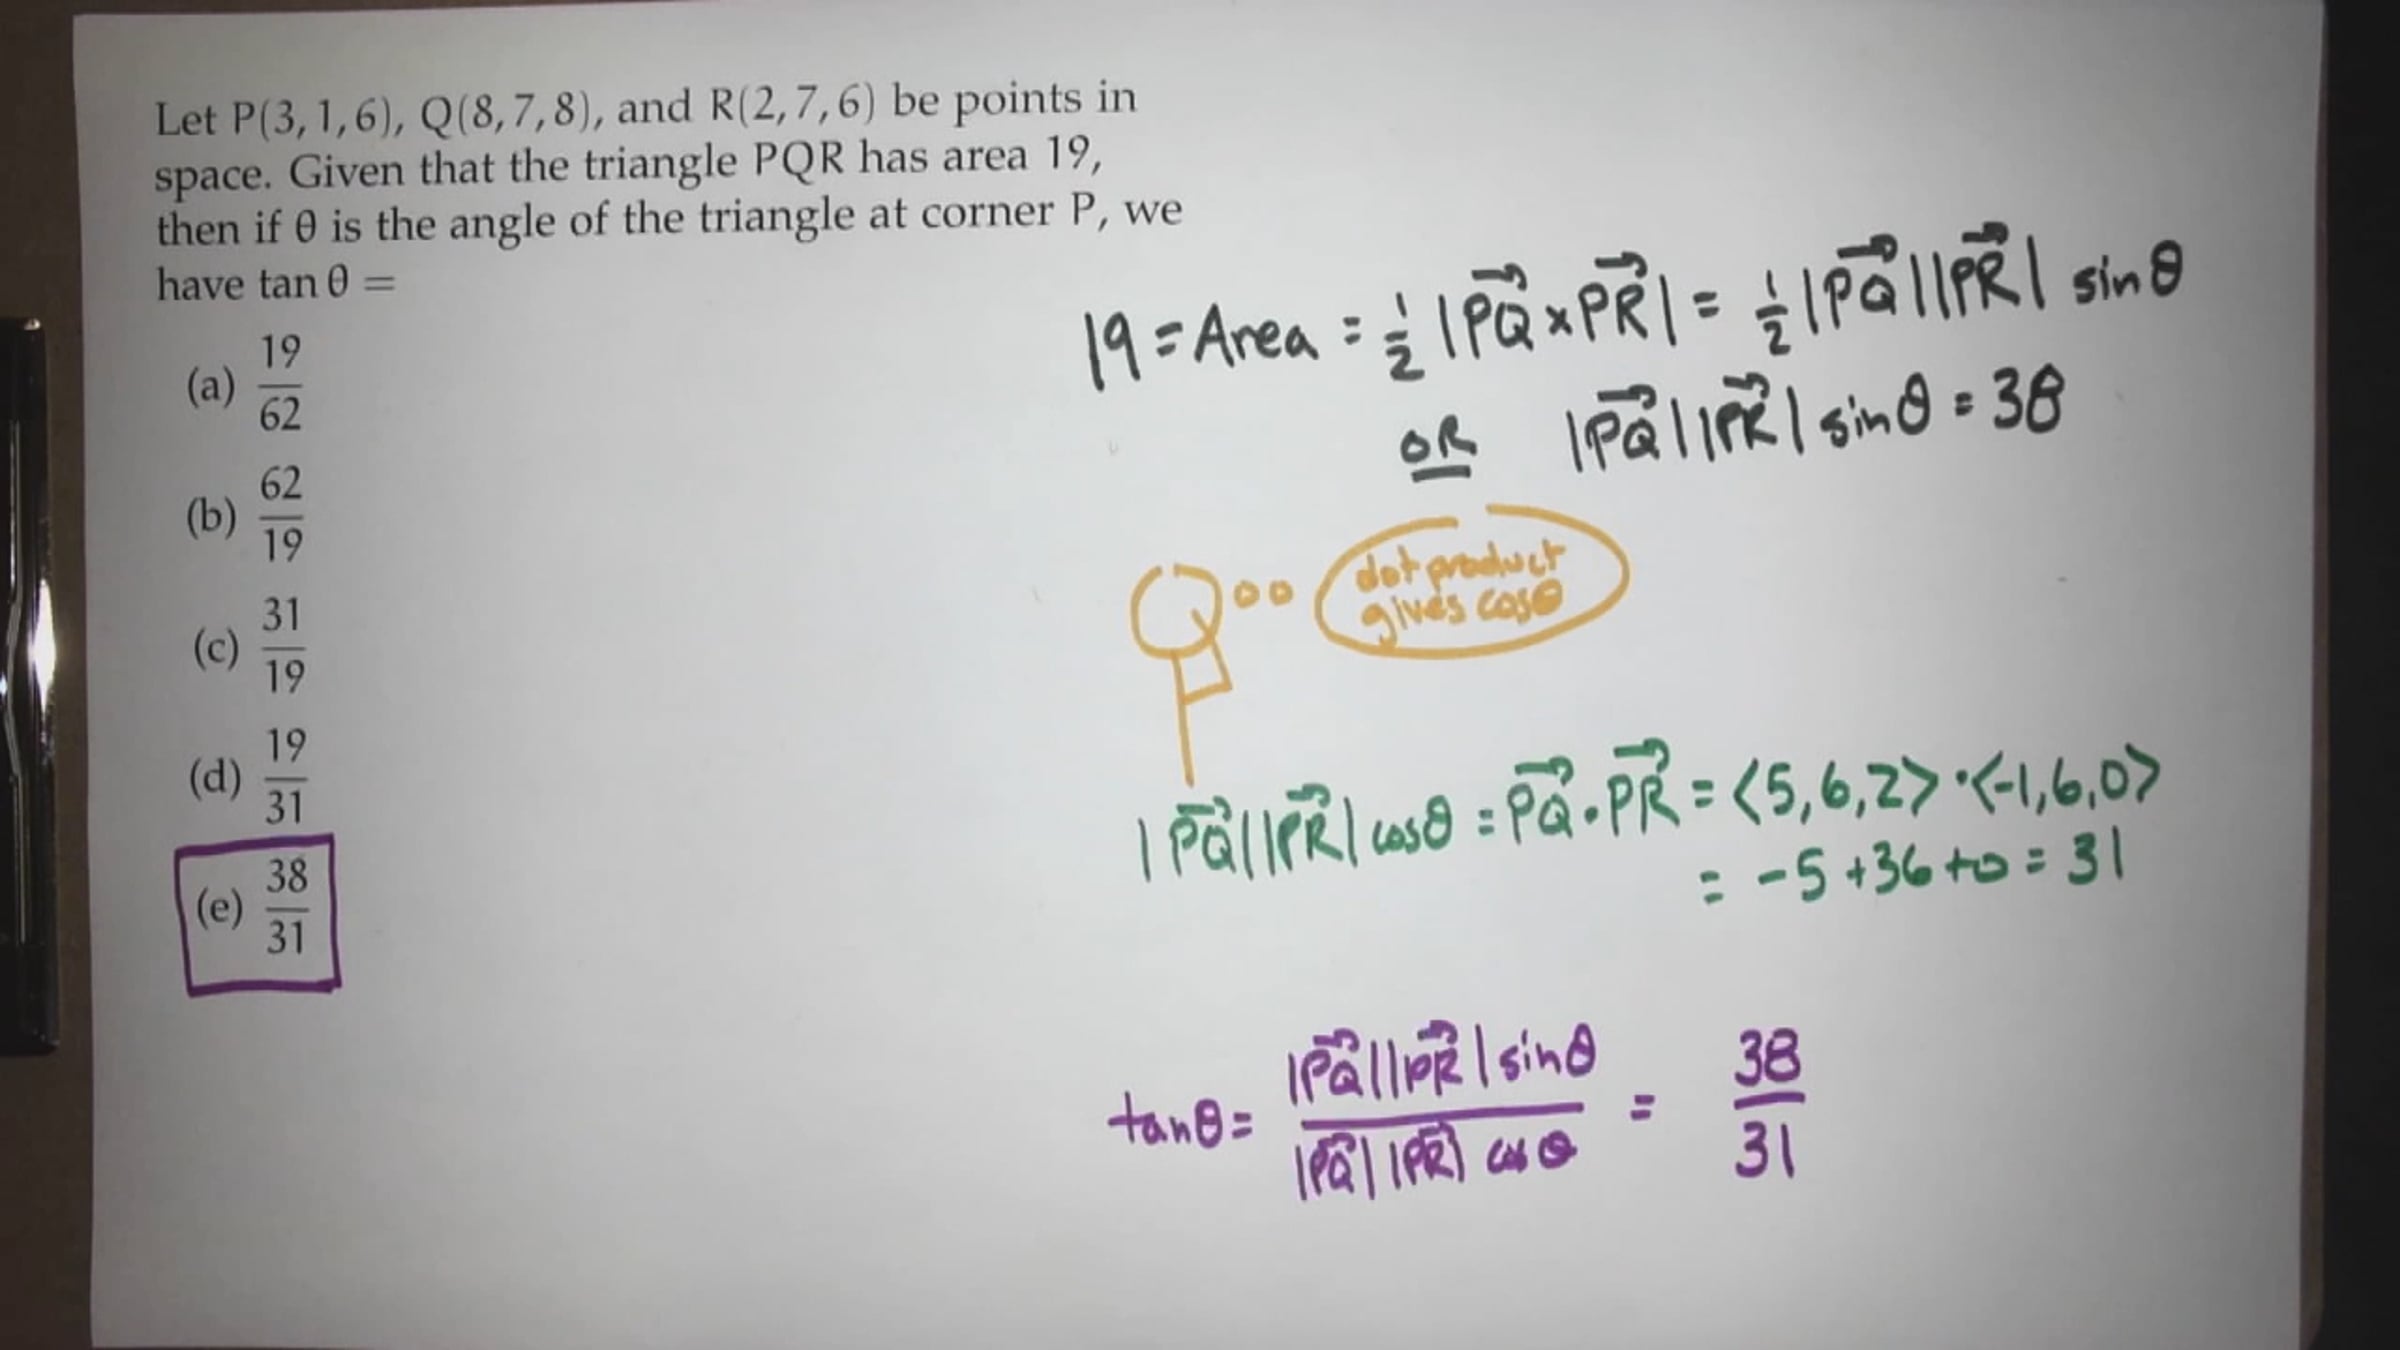 Let P(3, 1, 6), Q(8, 7, 8), and R(2, 7, 6) be points in
space. Given that the triangle PQR has area 19,
then if θ is the angle of the triangle at corner P, we
have tan θ =
(a) 19/62
(b) 62/19
(c) 31/19
(d) 19/31
(e) 38/31
19 = Area = ½ |PQ⃗ × PR⃗| = ½ |PQ⃗||PR⃗| sin θ
OR |PQ⃗||PR⃗| sin θ = 38
dot product
gives cos θ
|PQ⃗||PR⃗| cos θ = PQ⃗ · PR⃗ = <5, 6, 2> · <-1, 6, 0>
= -5 + 36 + 0 = 31
tan θ = |PQ⃗||PR⃗| sin θ / |PQ⃗||PR⃗| cos θ = 38/31